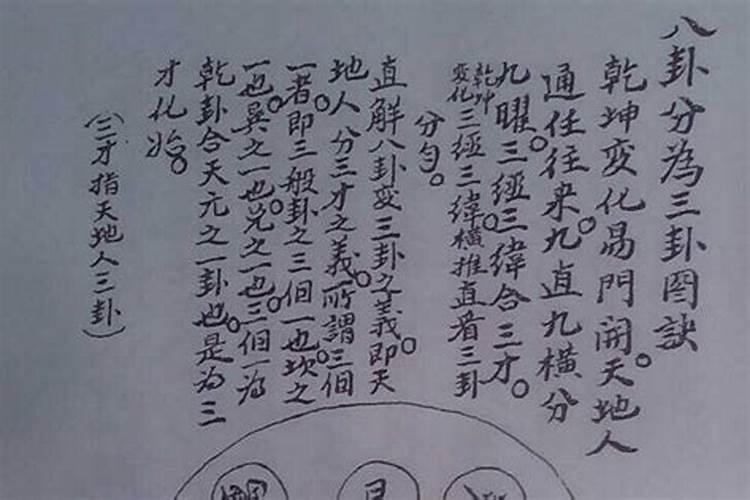 八卦分為三卦图訣
乾坤变化易門開。天地人
通任往来。九直九横分
九曜。三經三緯合三才。
乾坤变化三經三緯。横推直看三卦
分勻。
直解八卦变三卦之義。即天
地人分三才之義。所謂三個
一者。即三般卦之三個一也。坎之
一也。巽之一也。兑之一也。三個一為
乾卦合天元之一卦也。是為三
才化始。
(三才指天地人三卦)